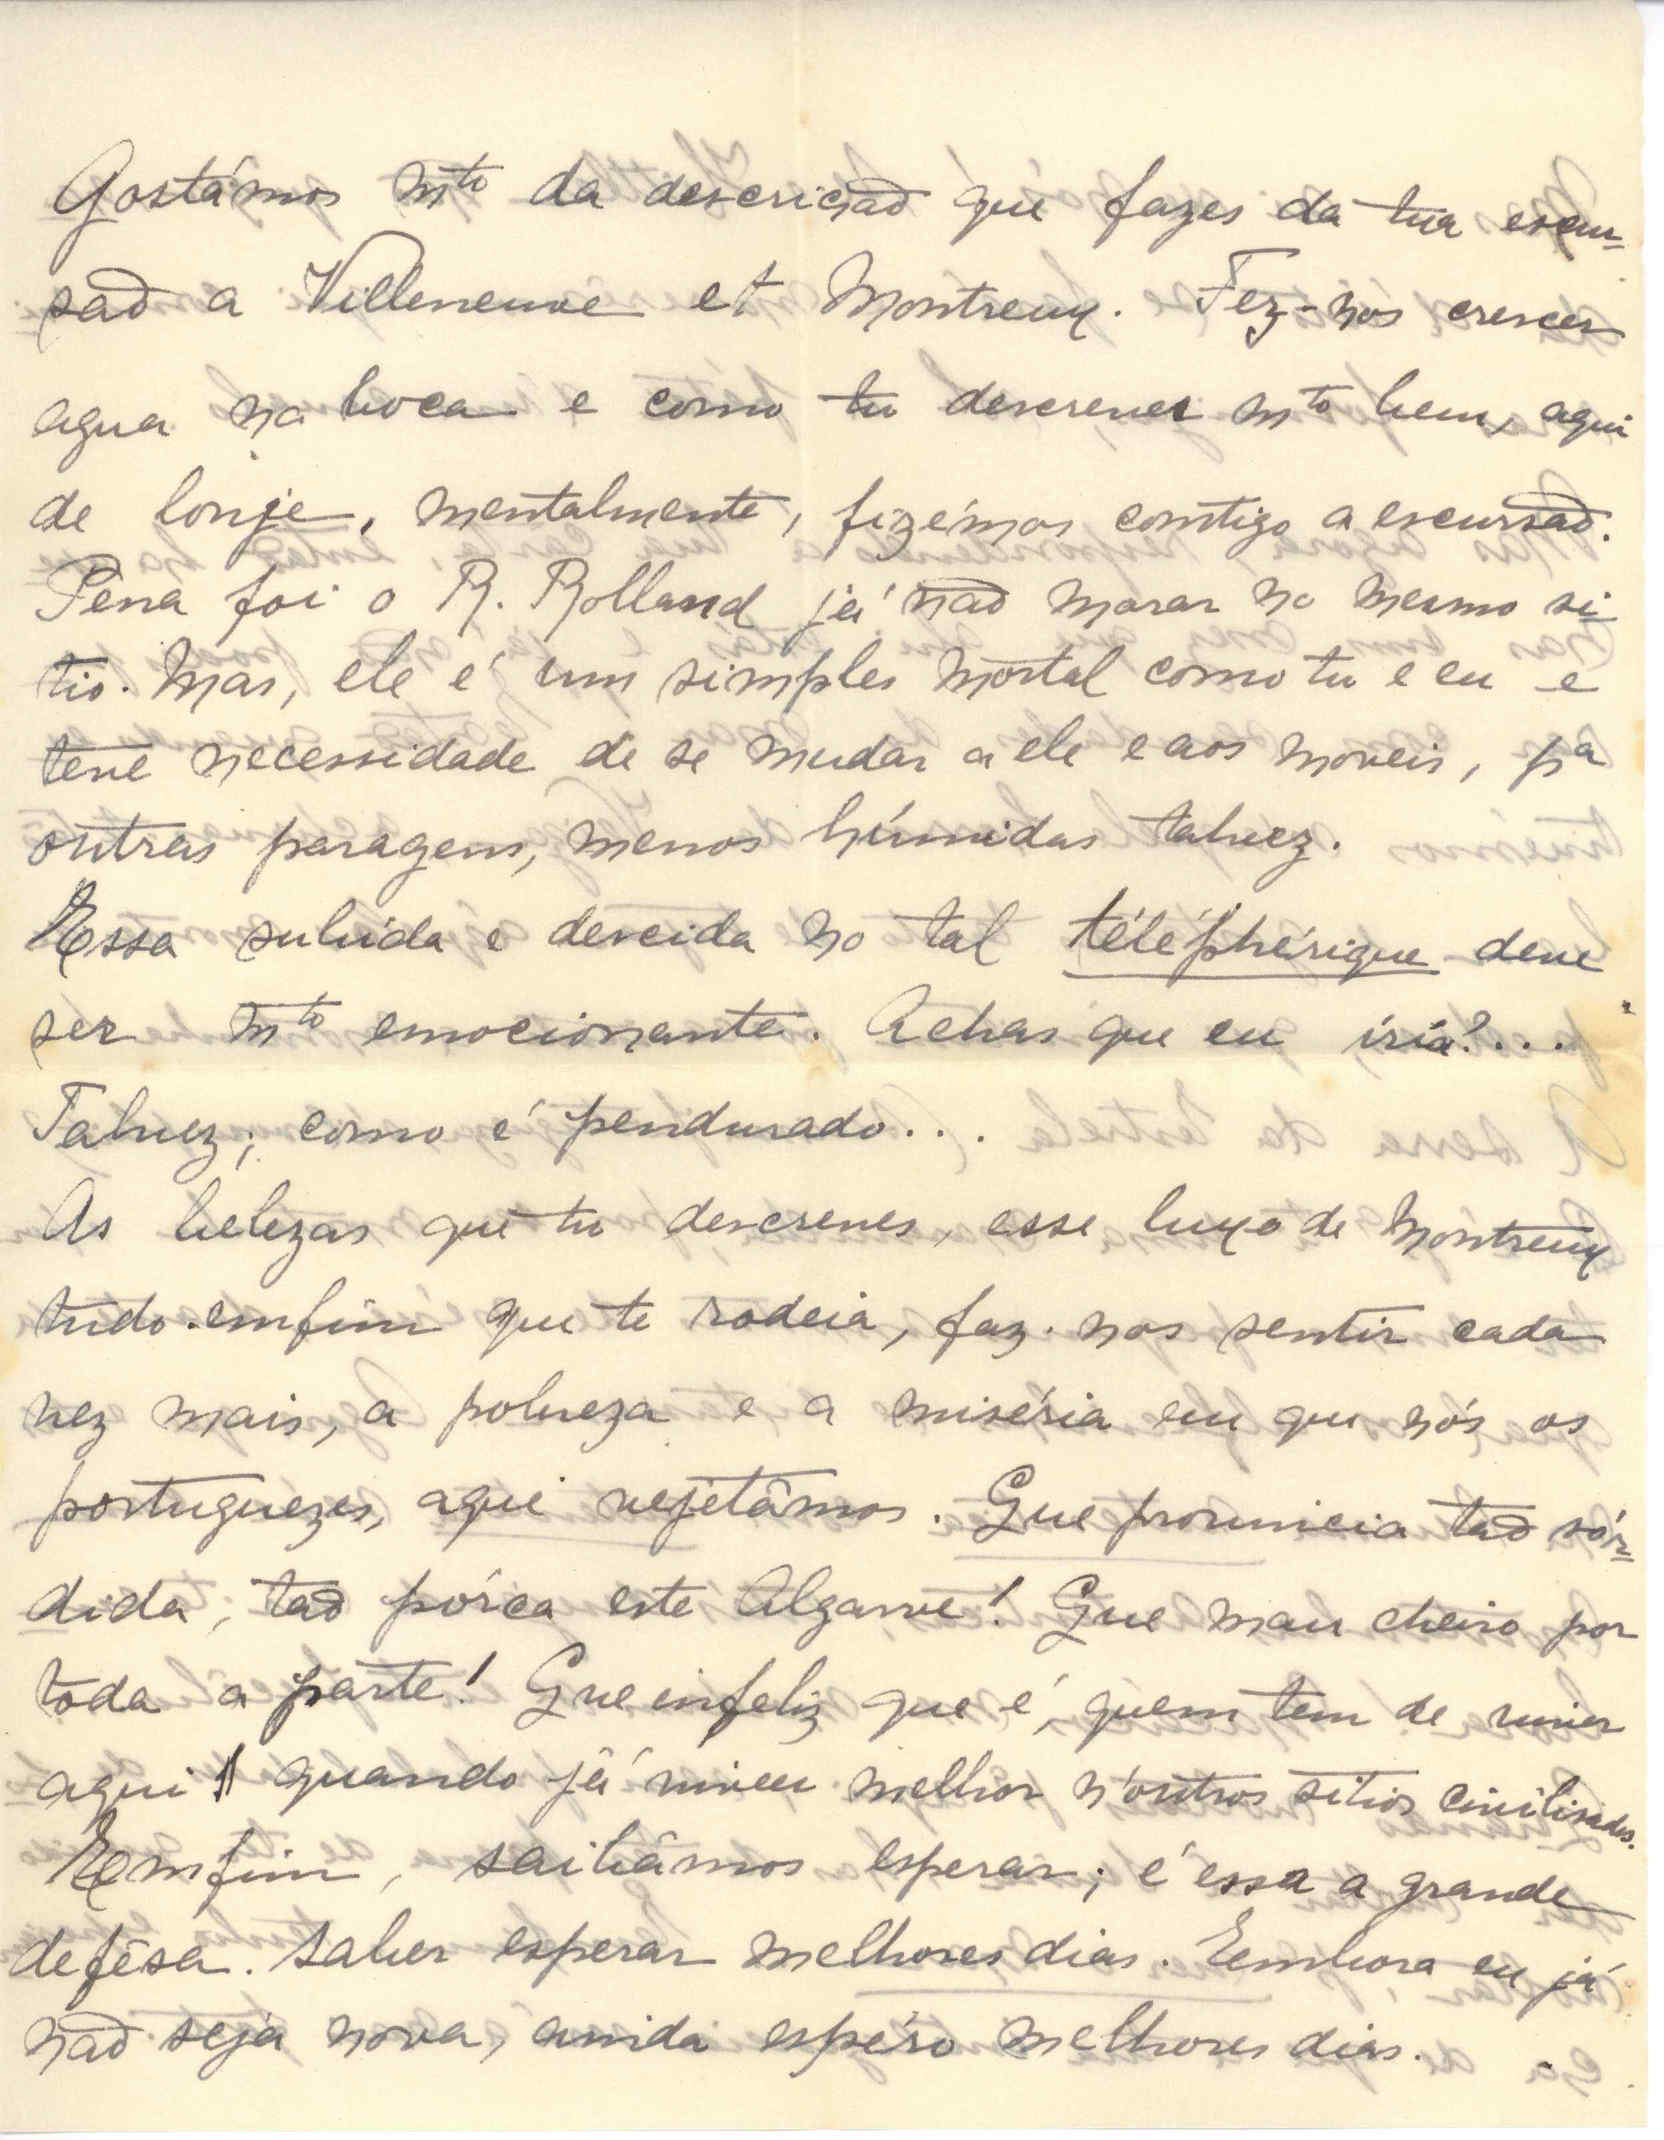 Gostámos mto da descrição que fazes da tua escur-
são a Villeneuve et Montreux. Fez-nos crescer
agua na boca e como tu descreves mto bem, aqui
de lonje, mentalmente, fizémos comtigo a escursão.
Pena foi o R. Rolland já não morar no mesmo si-
tio. Mas, ele é um simples mortal como tu e eu e
teve necessidade de se mudar a ele e aos moveis, pa
outras paragens, menos húmidas talvez.
Essa subida e descida no tal téléphérique deve
ser mto emocionante. Achas que eu iría?...
Talvez; como é pendurado...
As belezas que tu descreves, esse luxo de Montreux
tudo emfim que te rodeia, faz-nos sentir cada
vez mais, a pobreza e a miséria em que nós os
portuguezes, aqui vejetâmos. Que provincia tão sór-
dida, tão pórca este Algarve! Que mau cheiro por
toda a parte! Que infeliz que é, quem tem de viver
aqui quando já viveu melhor n'outros sitios civilisados.
Emfim, saibâmos esperar; é essa a grande
defêsa. Saber esperar melhores dias. Embora eu já
não seja nova, ainda espéro melhores dias.